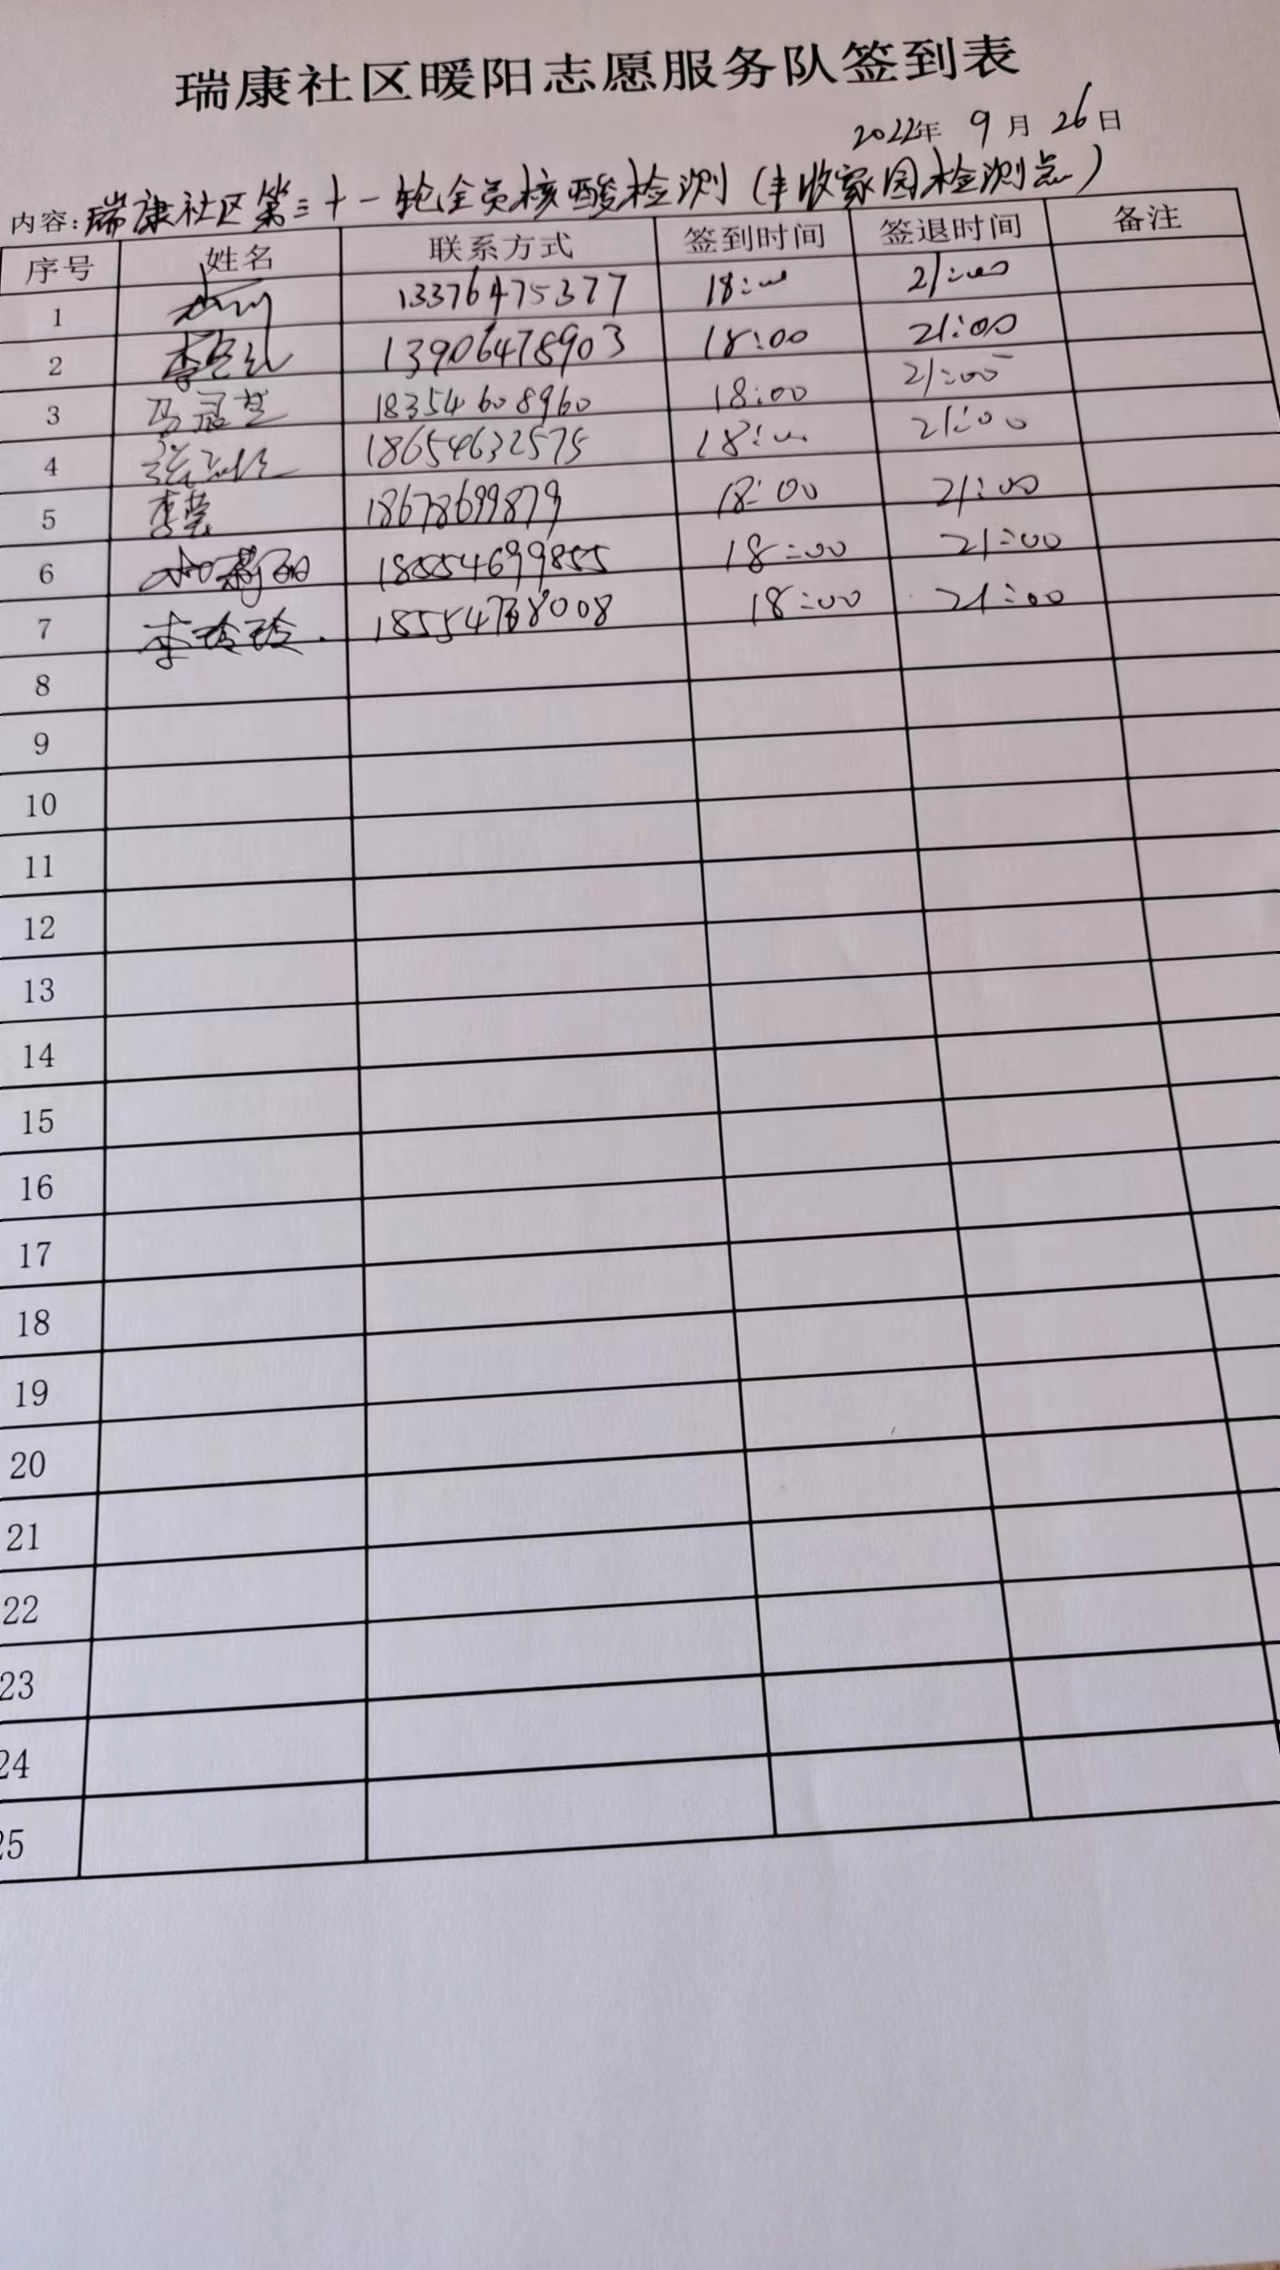 瑞康社区暖阳志愿服务队签到表
2022年 9月 26日
内容:瑞康社区第三十一轮全员核酸检测(丰收家园检测点)
序号 姓名 联系方式 签到时间 签退时间 备注
1 13376475377 18:00 21:00
2 13906478903 18:00 21:00
3 18354608960 18:00 21:00
4 18654632575 18:00 21:00
5 李莹 18678699879 18:00 21:00
6 18554699855 18:00 21:00
7 李玲玲 18:00 21:00
8
9
10
11
12
13
14
15
16
17
18
19
20
21
22
23
24
25